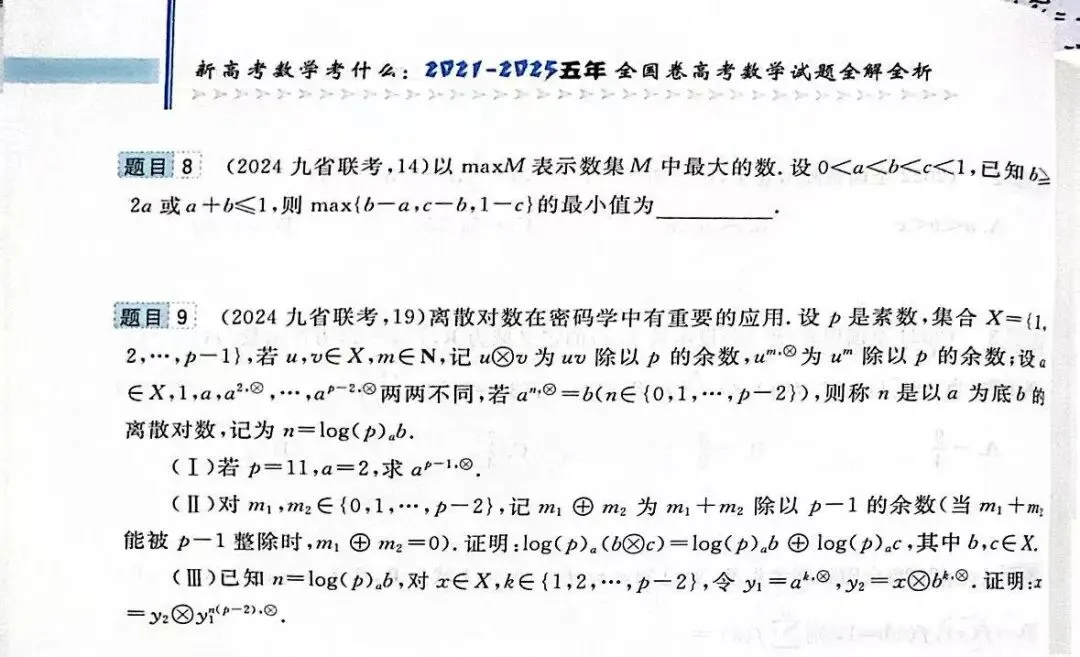 新高考数学考什么：2021-2025五年 全国卷高考数学试题全解全析
题目 8 （2024 九省联考,14)以 maxM 表示数集 M 中最大的数. 设 0<a<b<c<1,已知 b≥
2a 或 a+b≤1,则 max{b-a,c-b,1-c}的最小值为________.
题目 9 （2024 九省联考,19)离散对数在密码学中有重要的应用. 设 p 是素数,集合 X={1,
2,⋯,p-1},若 u,v∈X,m∈N,记 u⊗v 为 uv 除以 p 的余数,u^{m,⊗}为 u^m 除以 p 的余数;设 a
∈X,1,a,a^{2,⊗},⋯,a^{p-2,⊗}两两不同,若 a^{n,⊗}=b(n∈{0,1,⋯,p-2}),则称 n 是以 a 为底 b 的
离散对数,记为 n=log(p)_a b.
（Ⅰ)若 p=11,a=2,求 a^{p-1,⊗}.
（Ⅱ)对 m₁,m₂∈{0,1,⋯,p-2},记 m₁ ⊕ m₂ 为 m₁+m₂ 除以 p-1 的余数(当 m₁+m₂
能被 p-1 整除时,m₁ ⊕ m₂=0). 证明:log(p)_a(b⊗c)=log(p)_a b ⊕ log(p)_a c,其中 b,c∈X.
（Ⅲ)已知 n=log(p)_a b,对 x∈X,k∈{1,2,⋯,p-2},令 y₁=a^{k,⊗},y₂=x⊗b^{k,⊗}. 证明:x
=y₂⊗y₁^{n(p-2),⊗}.